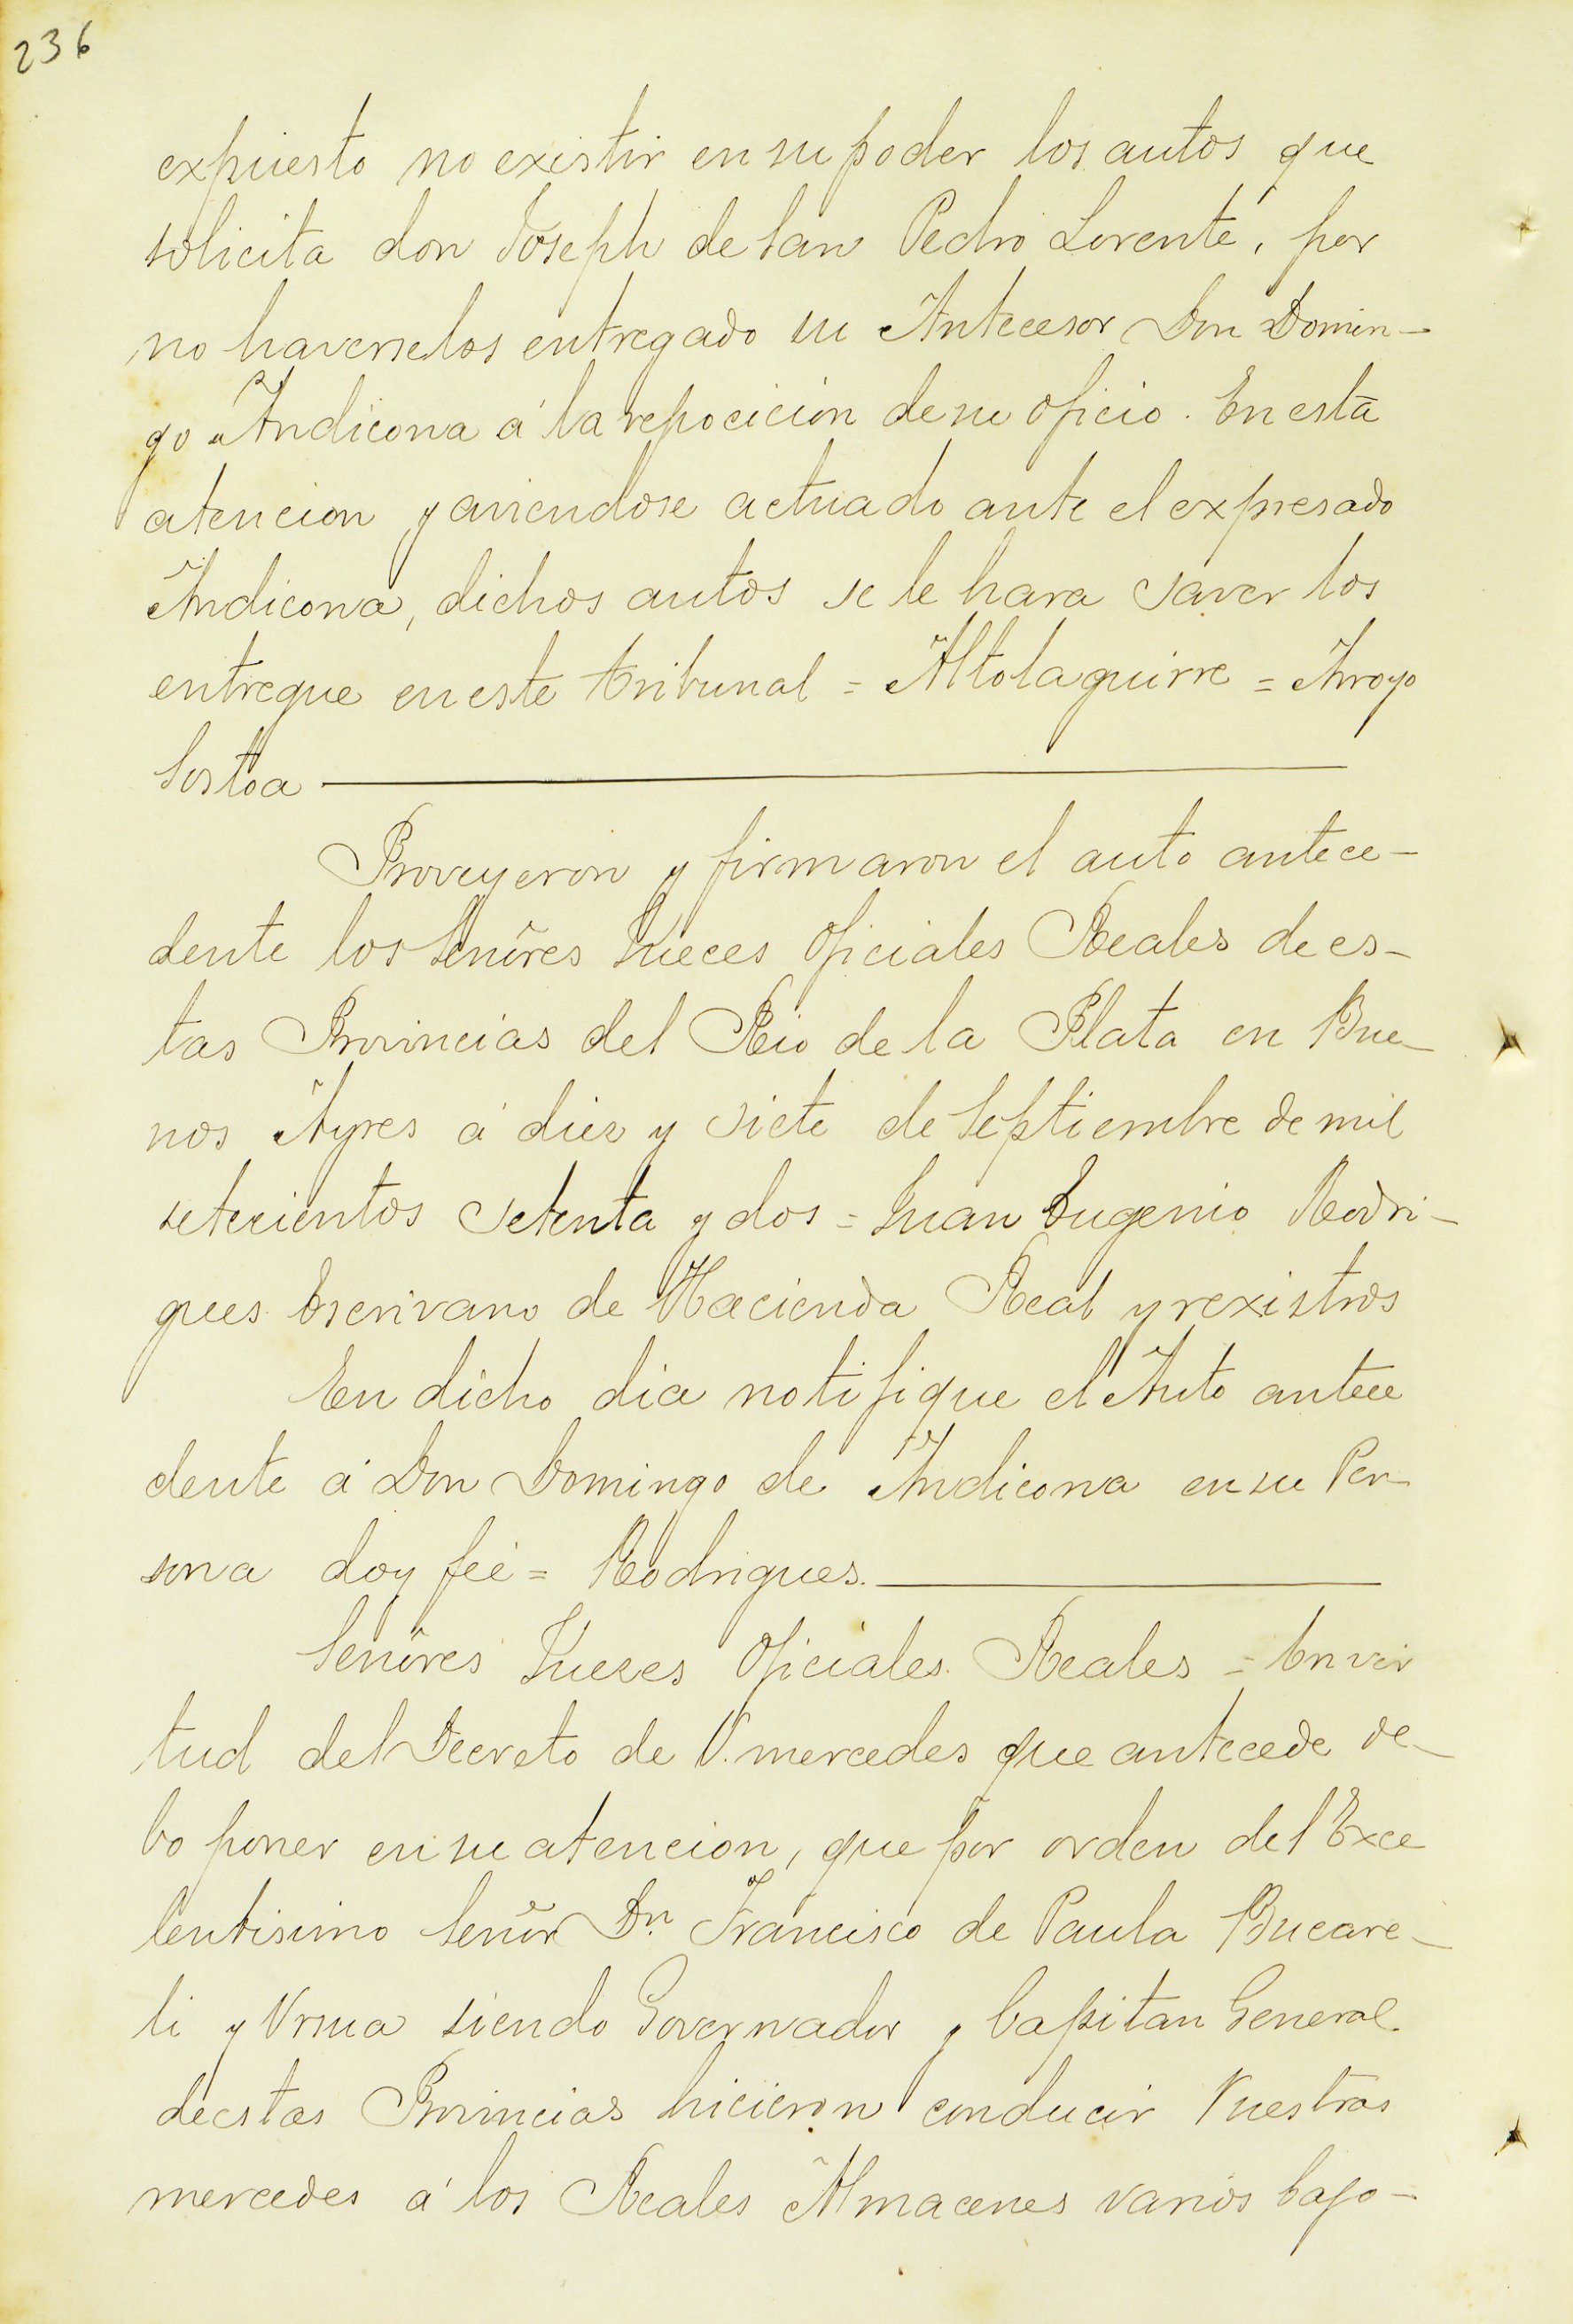 236
expuesto no existir en su poder los autos que
solicita don Joseph de San Pedro Lorente, por
no haverselos entregado su Antecesor Don Domin-
go Andicona á la repocicion de su oficio. En esta
atencion y aviendose actuado ante el expresado
Andicona, dichos autos se le hara saver los
entregue en este tribunal = Altolaguirre = Arroyo
Sostoa
Proveyeron y firmaron el auto antece-
dente los Señores Jueces Oficiales Reales de es-
tas Provincias del Rio de la Plata en Bue-
nos Ayres á diez y siete de Septiembre de mil
setecientos setenta y dos = Juan Eugenio Rodri-
gues Escrivano de Hacienda Real y rexistros
En dicho dia notifique el Auto antece
dente á Don Domingo de Andicona en su Per-
sona doy feé = Rodrigues.
Señores Jueses Oficiales Reales = En vir
tud del Decreto de V. mercedes que antecede de-
bo poner en su atencion, que por orden del Exce
lentisimo Señor Dn. Francisco de Paula Bucare-
li y Ursua siendo Governador y Capitan General
de estas Provincias hicieron conducir Vuestras
mercedes á los Reales Almacenes varios cajo-